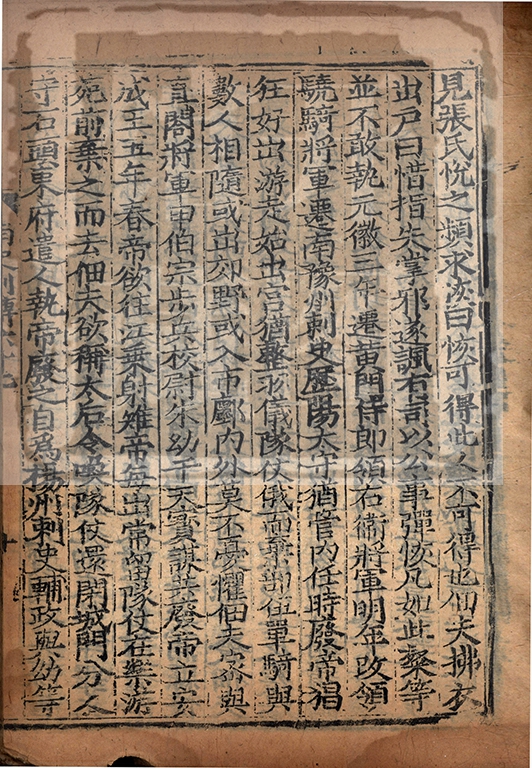 見張氏恱之頻求恢曰恢可得此人不可得也佃夫拂衣
出戸曰惜指失掌邪遂諷有司以公事彈恢凡如此粲等
並不敢執元徽三年遷黃門侍郎領右衞將軍明年改領
驍騎將軍遷南豫州刺史歷陽太守猶管内任時廢帝猖
狂好出游走始出宫猶整羽儀隊仗俄而棄部伍單騎與
數人相隨或出郊野或入市鄽内外莫不憂懼佃夫密與
直閣將軍申伯宗步兵校尉朱幼于天寳謀共廢帝立安
成王五年春帝欲往江乗射雉帝每出常留隊仗在樂游
苑前棄之而去佃夫欲稱太后令喚隊仗還閉城門分人
守石頭東府遣人執帝廢之自爲楊州刺史輔政與幼等